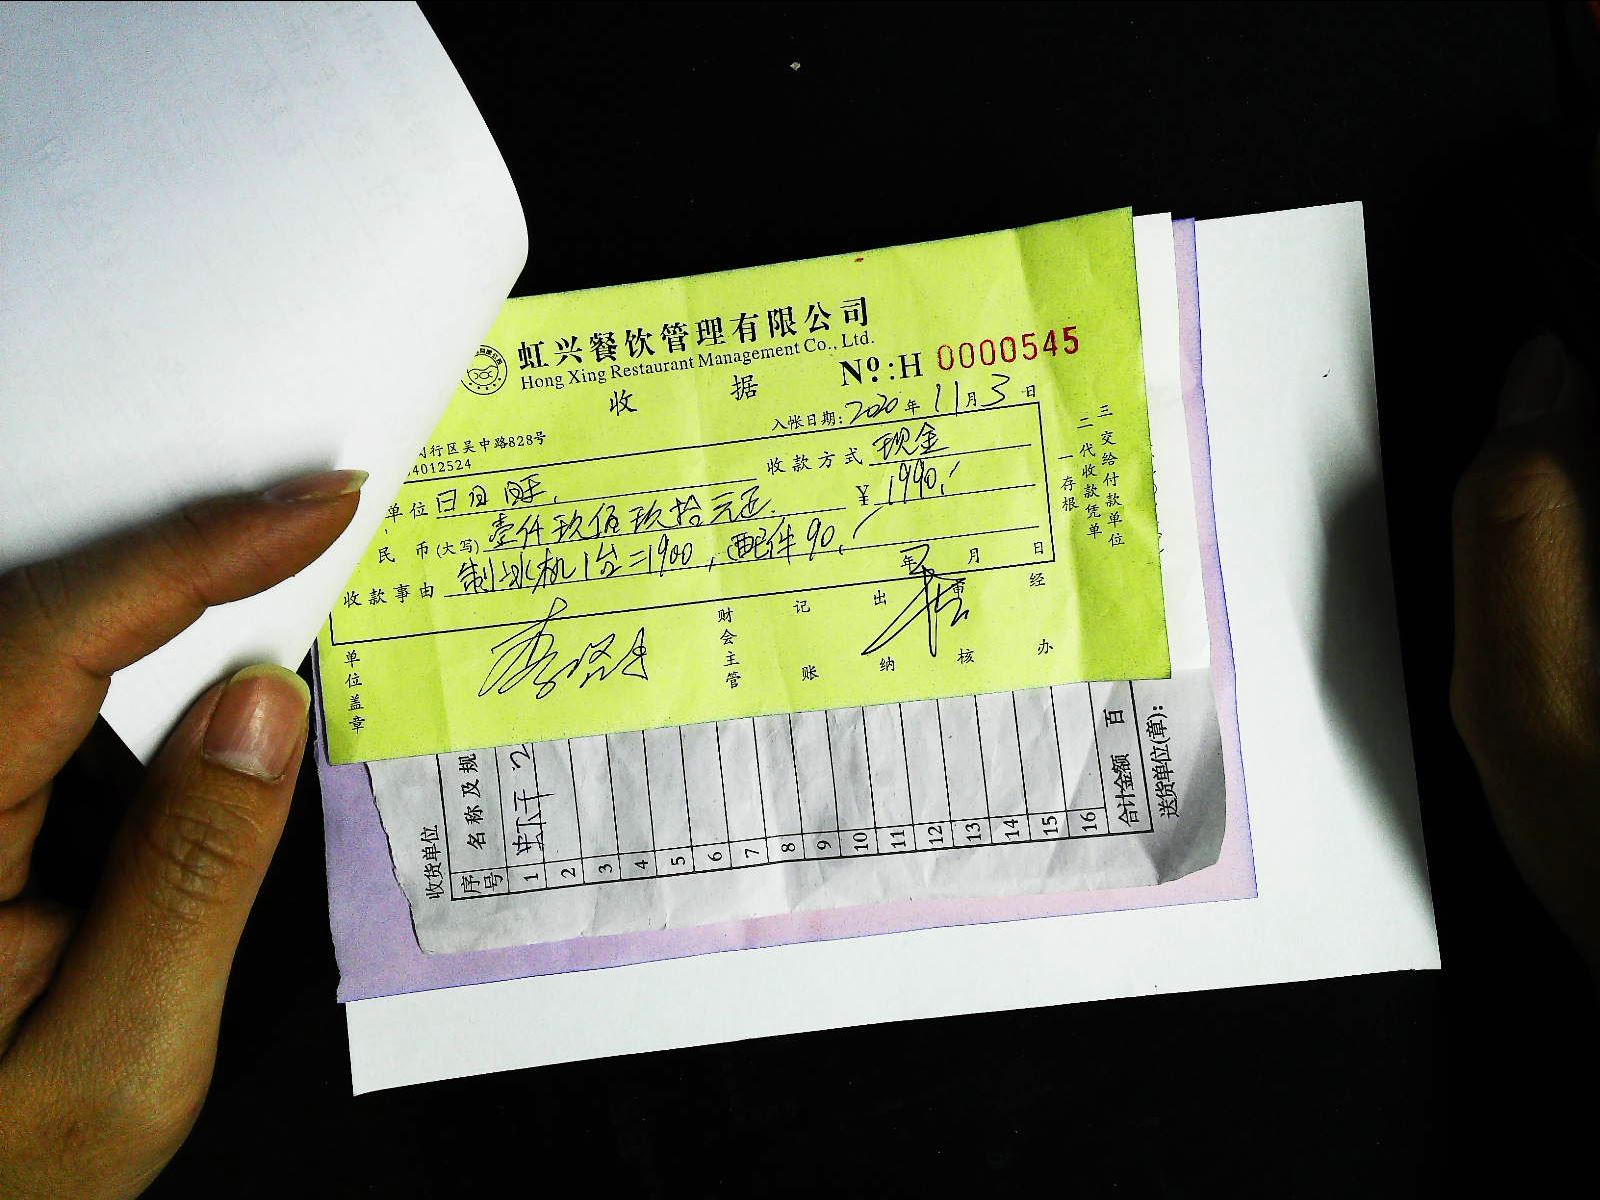 虹兴餐饮管理有限公司
Hong Xing Restaurant Management Co., Ltd.
收 据
No:H 0000545
行区吴中路828号
4012524
入帐日期: 2020 年 11 月 3 日
单位 日日旺
收款方式 现金
民 币(大写) 壹仟玖佰玖拾元正
¥ 1990.
收款事由 制冰机1台=1900,配件90.
年 月 日
单位盖章
财会主管
记账
出纳
审核
经办
一存根
二代收款凭单
三交给付款单位
收货单位
序号 名称及规
1
2
3
4
5
6
7
8
9
10
11
12
13
14
15
16
合计金额 百
送货单位(章):